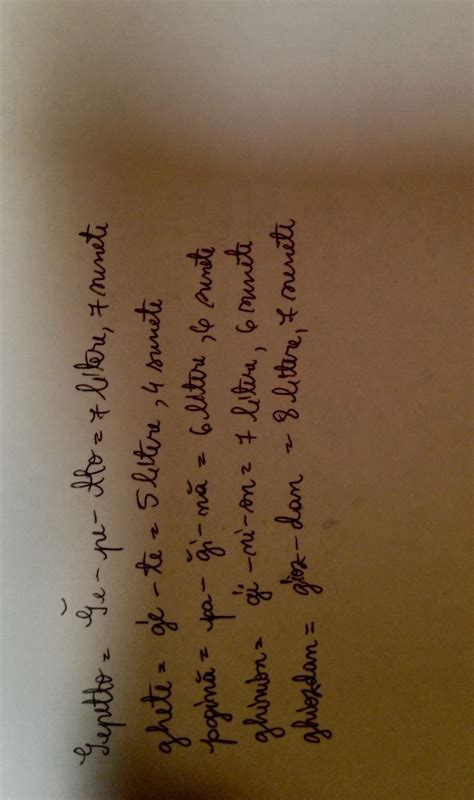 Gepetto = Ğe - pe - tto = 7 litere, 7 sunete
ghete = g'e - te = 5 litere, 4 sunete
pagină = pa - ği - nă = 6 litere, 6 sunete
ghinion = g'i - ni - on = 7 litere, 6 sunete
ghiozdan = g'ioz - dan = 8 litere, 7 sunete